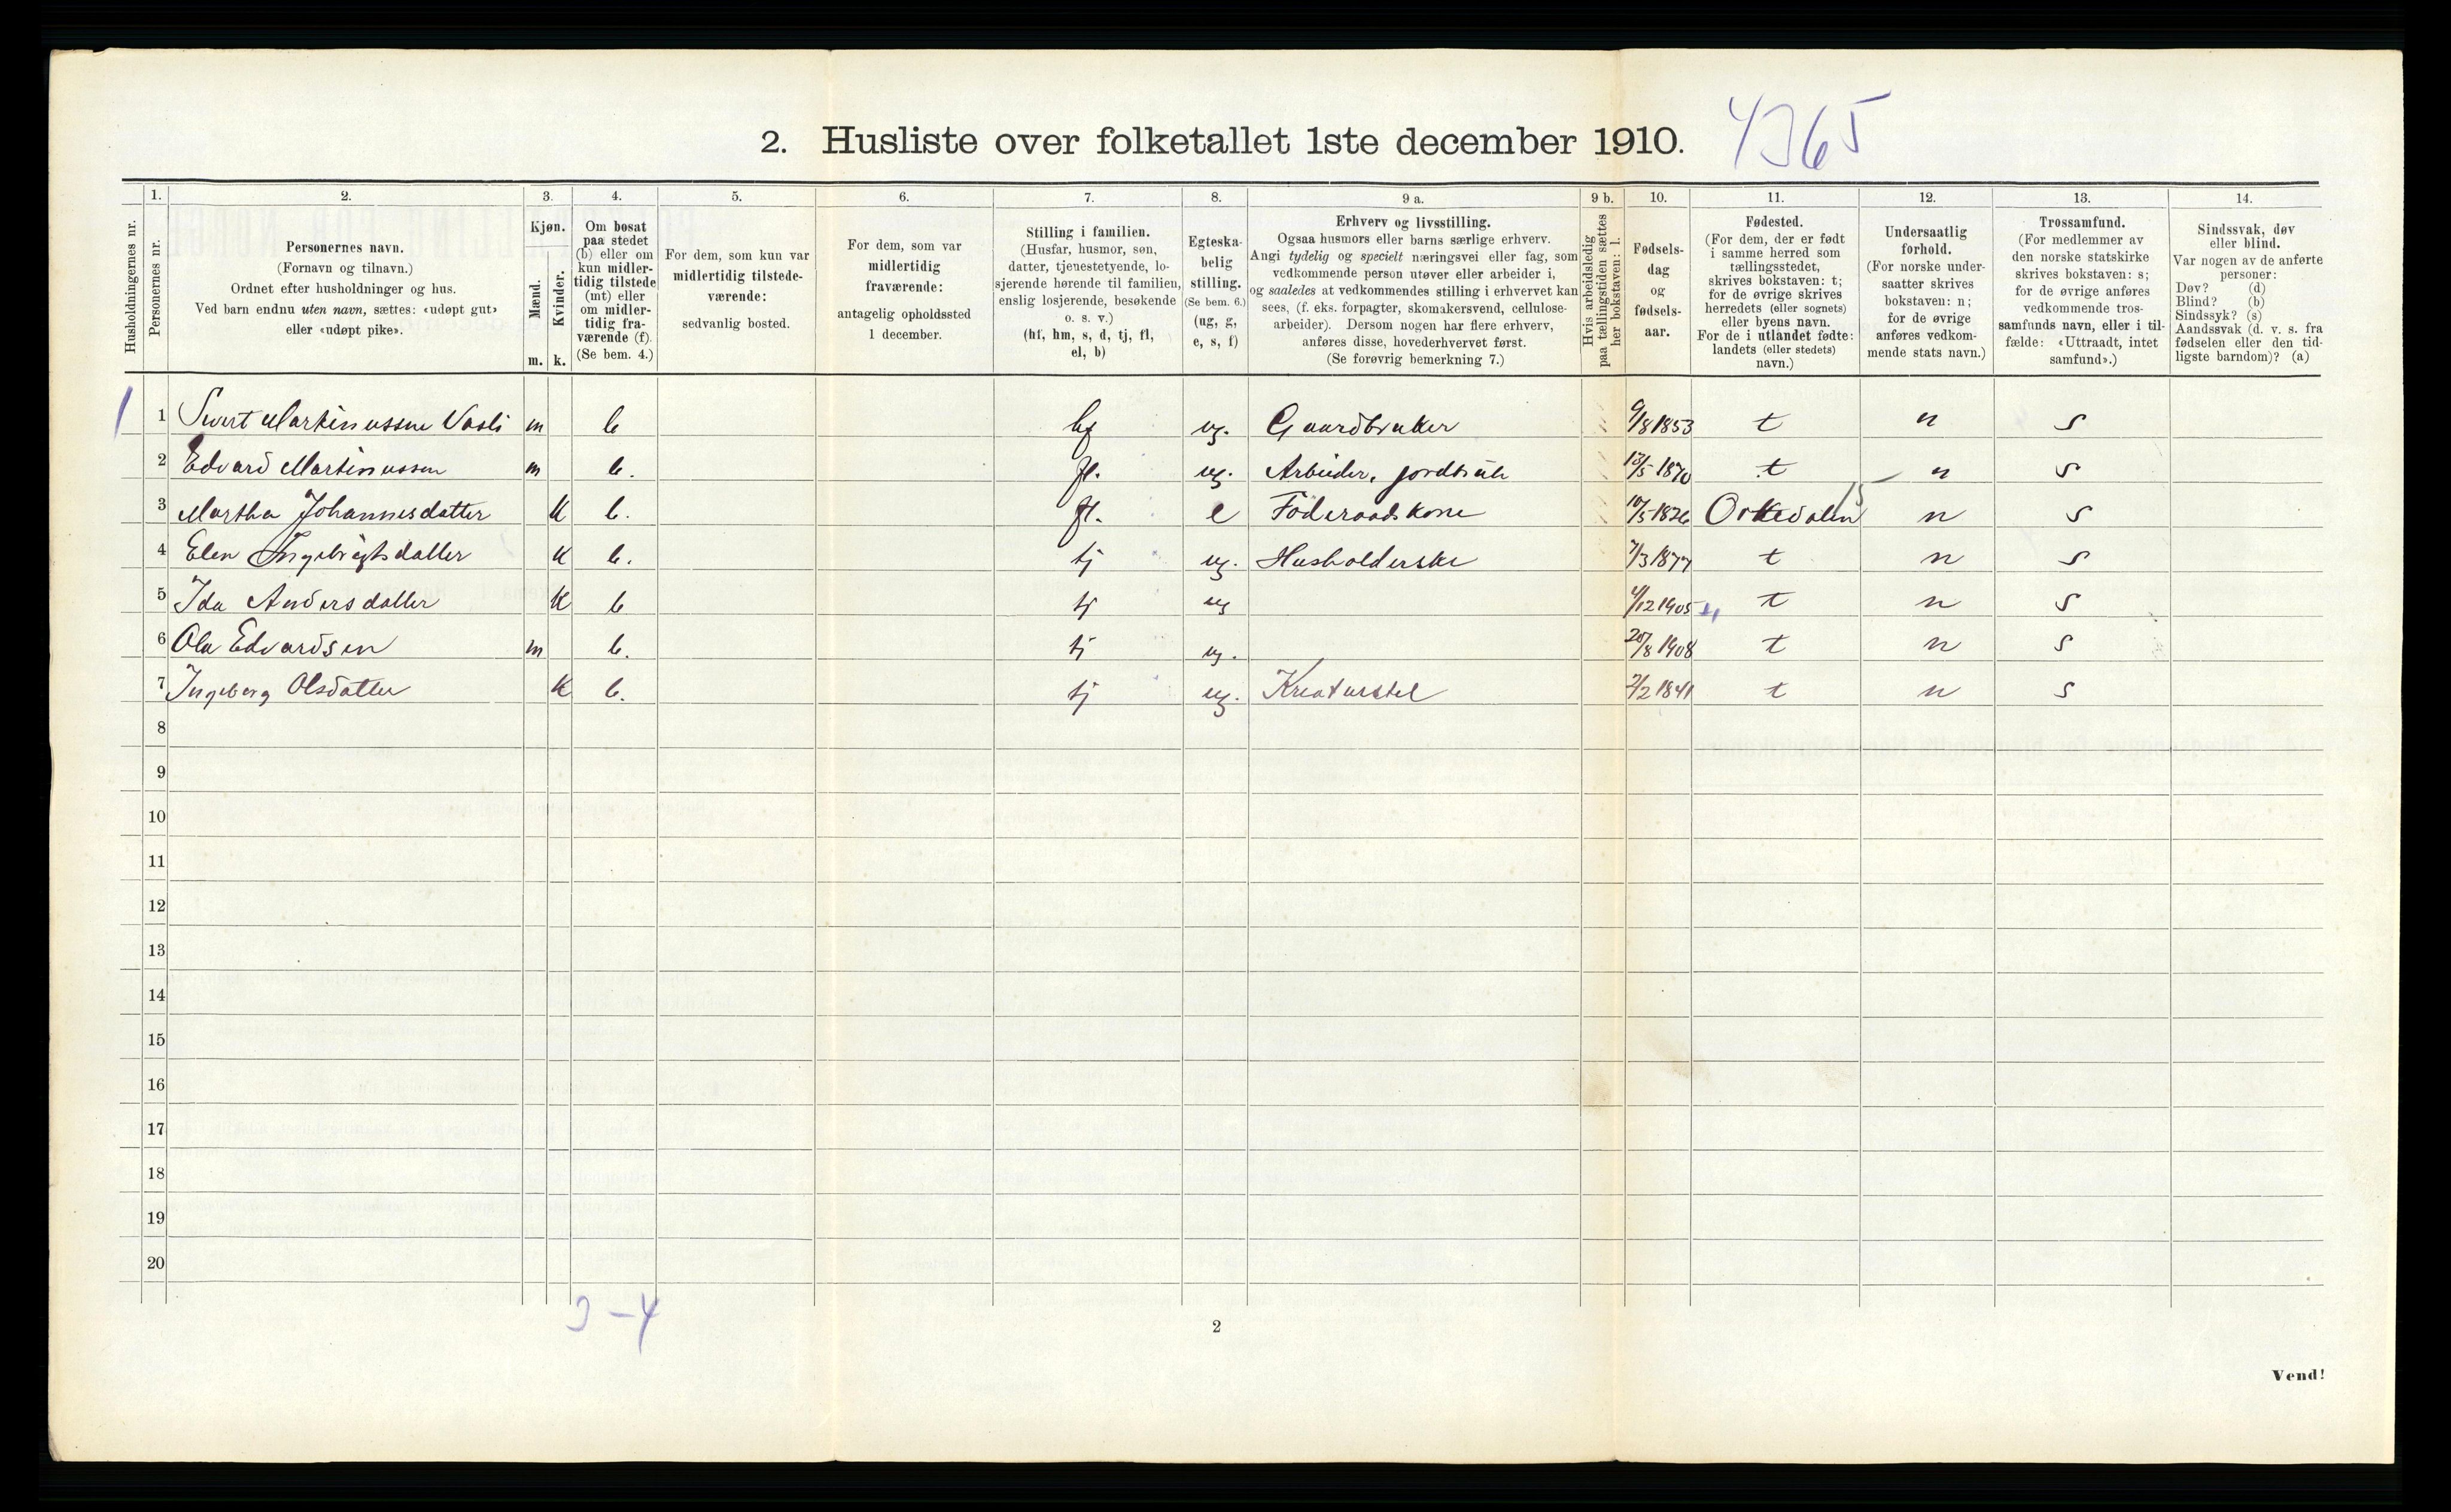 2. Husliste over folketallet 1ste december 1910. 4365
1. 2. 3. 4. 5. 6. 7. 8. 9 a. 9 b. 10. 11. 12. 13. 14.
Husholdningernes nr.
Personernes nr.
Personernes navn.
(Fornavn og tilnavn.)
Ordnet efter husholdninger og hus.
Ved barn endnu uten navn, sættes: «udøpt gut»
eller «udøpt pike».
Kjøn.
Mænd.
Kvinder.
m. k.
Om bosat
paa stedet
(b) eller om
kun midler-
tidig tilstede
(mt) eller
om midler-
tidig fra-
værende (f).
(Se bem. 4.)
For dem, som kun var
midlertidig tilstede-
værende:
sedvanlig bosted.
For dem, som var
midlertidig
fraværende:
antagelig opholdssted
1 december.
Stilling i familien.
(Husfar, husmor, søn,
datter, tjenestetyende, lo-
sjerende hørende til familien,
enslig losjerende, besøkende
o. s. v.)
(hf, hm, s, d, tj, fl,
el, b)
Egteska-
belig
stilling.
(Se bem. 6.)
(ug, g,
e, s, f)
Erhverv og livsstilling.
Ogsaa husmors eller barns særlige erhverv.
Angi tydelig og specielt næringsvei eller fag, som
vedkommende person utøver eller arbeider i,
og saaledes at vedkommendes stilling i erhvervet kan
sees, (f. eks. forpagter, skomakersvend, cellulose-
arbeider). Dersom nogen har flere erhverv,
anføres disse, hovederhvervet først.
(Se forøvrig bemerkning 7.)
Hvis arbeidsledig
paa tællingstiden sættes
her bokstaven: l.
Fødsels-
dag
og
fødsels-
aar.
Fødested.
(For dem, der er født
i samme herred som
tællingsstedet,
skrives bokstaven: t;
for de øvrige skrives
herredets (eller sognets)
eller byens navn.
For de i utlandet fødte:
landets (eller stedets)
navn.)
Undersaatlig
forhold.
(For norske under-
saatter skrives
bokstaven: n;
for de øvrige
anføres vedkom-
mende stats navn.)
Trossamfund.
(For medlemmer av
den norske statskirke
skrives bokstaven: s;
for de øvrige anføres
vedkommende tros-
samfunds navn, eller i til-
fælde: «Uttraadt, intet
samfund».)
Sindssvak, døv
eller blind.
Var nogen av de anførte
personer:
Døv? (d)
Blind? (b)
Sindssyk? (s)
Aandssvak (d. v. s. fra
fødselen eller den tid-
ligste barndom)? (a)
1 1 Sivert Martinussen Vasli m b hf ug. Gaardbruker 9/8 1853 t n s
2 Edvard Martinussen m b. fl. ug. Arbeider, jordbruk 13/5 1870 t n s
3 Martha Johannesdatter K b. fl. e Föderaadskone 10/5 1826 Orkedalen 15 n s
4 Elen Ingebrigtsdatter K b. tj ug. Husholderske 7/3 1877 t n s
5 Ida Andersdatter K b tj ug 4/12 1905 t n s
6 Ola Edvardsen m b. tj ug. 20/8 1908 t n s
7 Ingeborg Olsdatter K b. tj ug. Kreaturstel 2/2 1841 t n s
8
9
10
11
12
13
14
15
16
17
18
19
20
3 – 4
2
Vend!